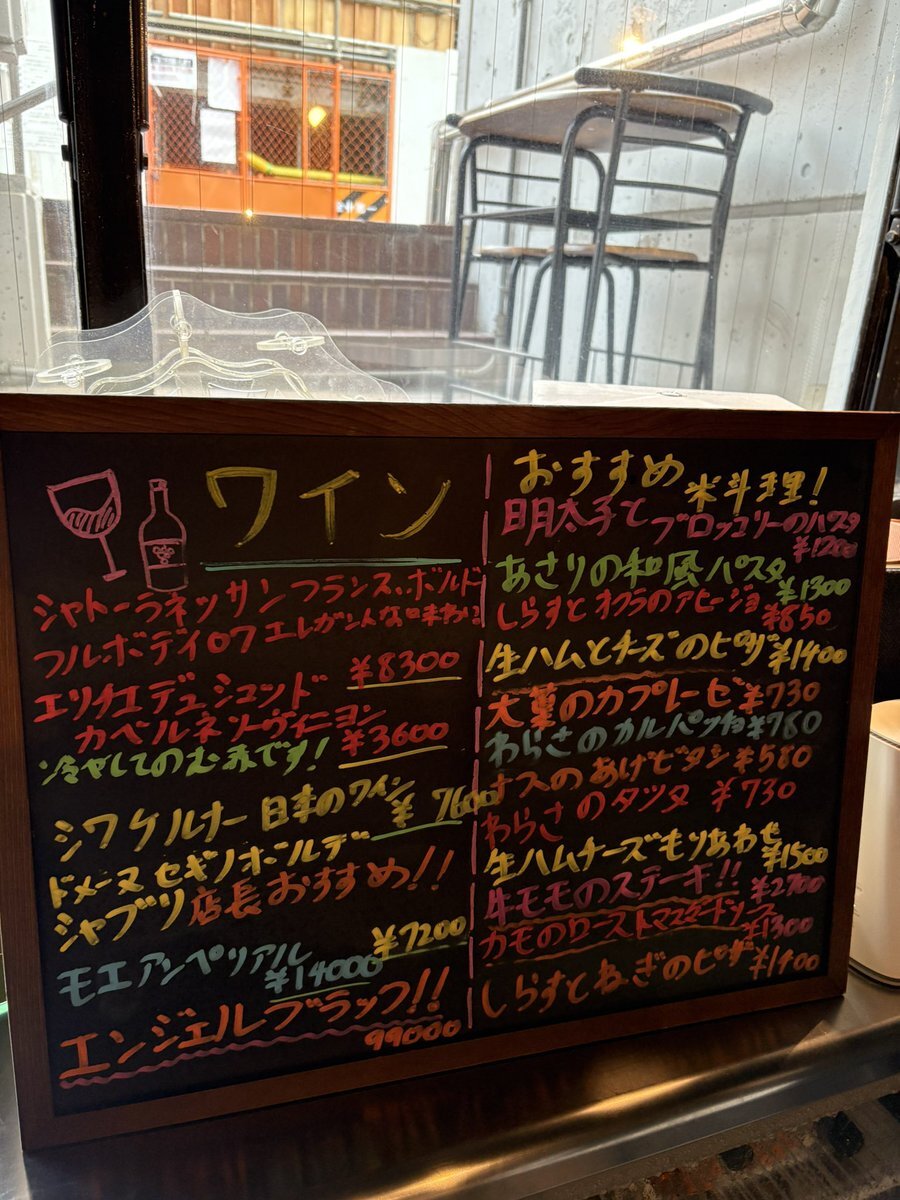 ワイン
シャトーラネッサンフランス、ボルドー
フルボディ ロワエレガントな味わい
¥8300
エリチエデュジョンド
カベルネソーヴィニヨン
¥3600
冷やしてのむ赤です!
シワケルナー 日本のワイン
¥7600
ドメーヌセギノボールデ
シャブリ 店長おすすめ!!
¥7200
モエアンペリアル
¥14000
エンジェルブラック!!
99000
おすすめ
料理!
明太子と
ブロッコリーのパスタ
¥1200
あさりの和風パスタ
¥1300
しらすとオクラのアヒージョ ¥850
生ハムとチーズのピザ ¥1400
大葉のカプレーゼ ¥730
わらさのカルパッチョ ¥780
ナスのあげビタシ ¥580
わらさのタツタ ¥730
生ハムチーズもりあわせ
¥1500
牛モモのステーキ!! ¥2700
カモのローストマスタードソース
¥1300
しらすとねぎのピザ ¥1400